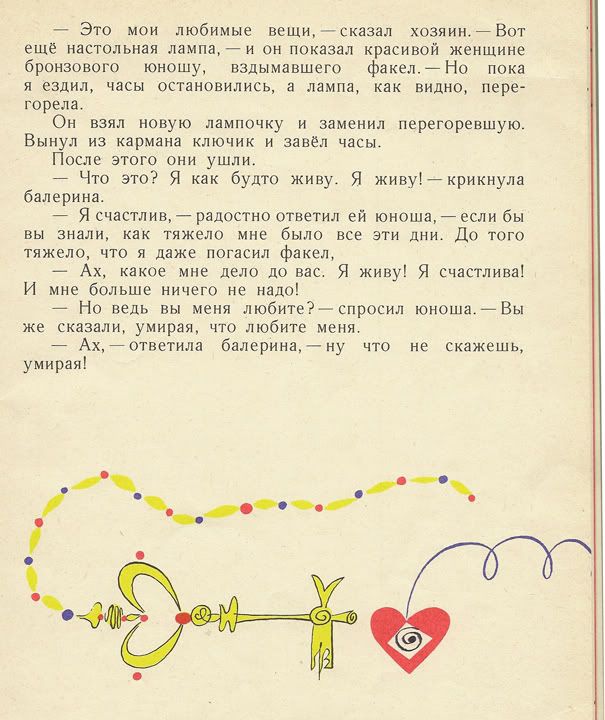 — Это мои любимые вещи, — сказал хозяин. — Вот
ещё настольная лампа, — и он показал красивой женщине
бронзового юношу, вздымавшего факел. — Но пока
я ездил, часы остановились, а лампа, как видно, пере-
горела.
Он взял новую лампочку и заменил перегоревшую.
Вынул из кармана ключик и завёл часы.
После этого они ушли.
— Что это? Я как будто живу. Я живу! — крикнула
балерина.
— Я счастлив, — радостно ответил ей юноша, — если бы
вы знали, как тяжело мне было все эти дни. До того
тяжело, что я даже погасил факел,
— Ах, какое мне дело до вас. Я живу! Я счастлива!
И мне больше ничего не надо!
— Но ведь вы меня любите? — спросил юноша. — Вы
же сказали, умирая, что любите меня.
— Ах, — ответила балерина, — ну что не скажешь,
умирая!